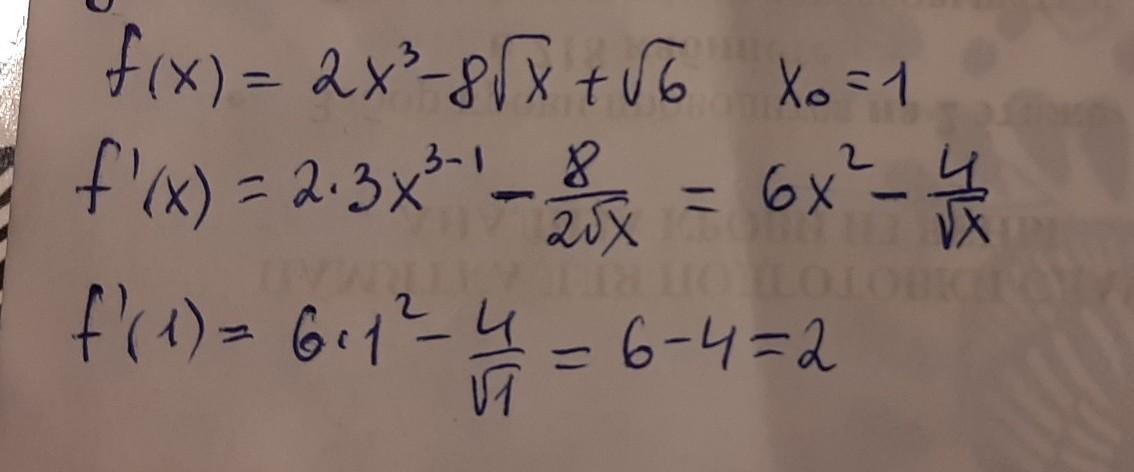 f(x) = 2x³ - 8√x + √6 x₀ = 1
f'(x) = 2·3x³⁻¹ - 8/(2√x) = 6x² - 4/√x
f'(1) = 6·1² - 4/√1 = 6 - 4 = 2